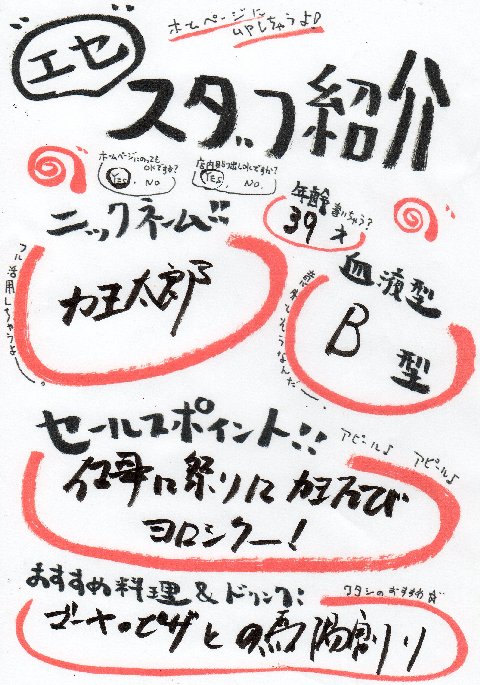 ホームページに
UPしちゃうよ!
エセ
スタッフ紹介
ホームページにのっても
OKですか?
YES . NO
店内貼り出しOKですか?
YES . NO
ニックネーム!!
年齢書いちゃう?
39才
カヨ太郎
フル活用しちゃうよ〜。
血液型
B型
セールスポイント!!
アピール♪ アピール♪
ヨロシクー!
おすすめ料理&ドリンク:
ワタシのおすすめ☆
ゴーヤのピザと